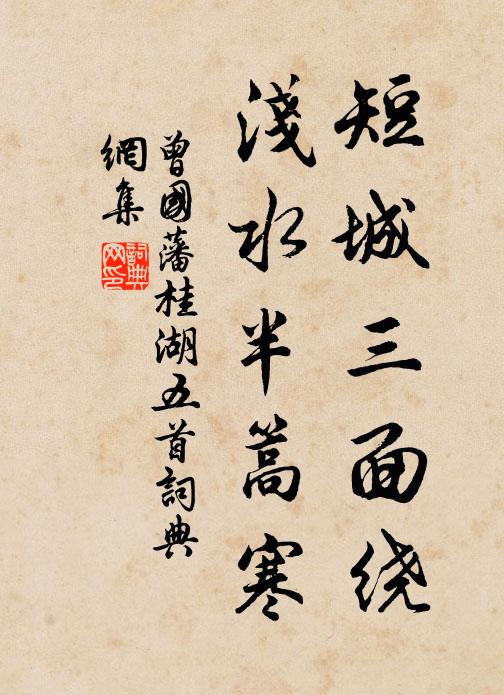 短城三面绕
淺水半篙寒
曾國藩桂湖五首詞典
網集
詞典
网印